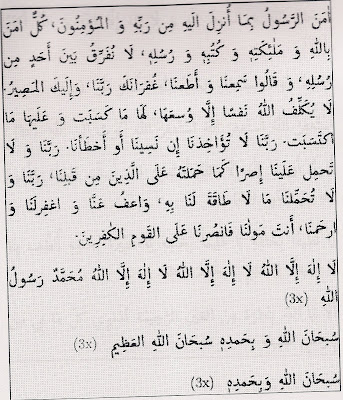 اٰمَنَ الرَّسُولُ بِمَا أُنزِلَ الَيهِ مِن رَبِّهِ وَ المُؤمِنُونَ، كُلٌّ اٰمَنَ
بِاللهِ وَ مَلٰئِكَتِهِ وَ كُتُبِهِ وَ رُسُلِهِ، لَا نُفَرِّقُ بَينَ أَحَدٍ مِن
رُسُلِهِ، وَ قَالُوا سَمِعنَا وَ أَطَعنَا، غُفرَانَكَ رَبَّنَا، وَإِلَيكَ المَصِيرُ.
لَا يُكَلِّفُ اللهُ نَفسًا إِلَّا وُسعَهَا، لَهَا مَا كَسَبَت وَ عَلَيهَا مَا
اكتَسَبَت. رَبَّنَا لَا تُؤَاخِذنَا إِن نَسِينَا أَو أَخطَأنَا. رَبَّنَا وَ لَا
تَحمِل عَلَينَا إِصرًا كَمَا حَمَلتَهُ عَلَى الَّذِينَ مِن قَبلِنَا، رَبَّنَا وَ
لَا تُحَمِّلنَا مَا لَا طَاقَةَ لَنَا بِهِ، وَاعفُ عَنَّا وَ اغفِرلَنَا وَ
ارحَمنَا، أَنتَ مَولٰنَا فَانصُرنَا عَلَى القَومِ الكٰفِرِينَ.
لَا إِلٰهَ إِلَّا اللهُ لَا إِلٰهَ إِلَّا اللهُ لَا إِلٰهَ إِلَّا اللهُ مُحَمَّدٌ رَسُولُ
اللهِ (3x)
سُبحَانَ اللهِ وَ بِحَمدِهِ سُبحَانَ اللهِ العَظِيمِ (3x)
سُبحَانَ اللهِ وَبِحَمدِهِ (3x)